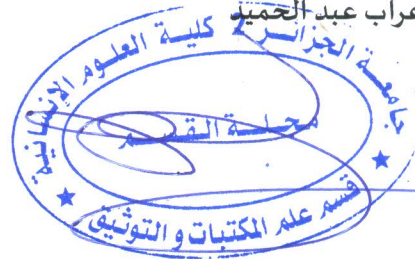 عراب عبد الحميد
جامعة الجزائر 2 كلية العلوم الإنسانية
مجلة القسم
قسم علم المكتبات و التوثيق